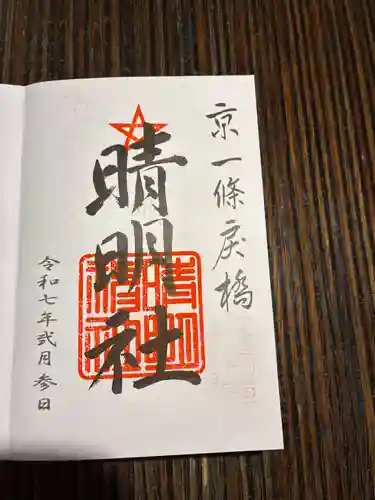 京一條戻橋
晴明社
令和七年弐月参日